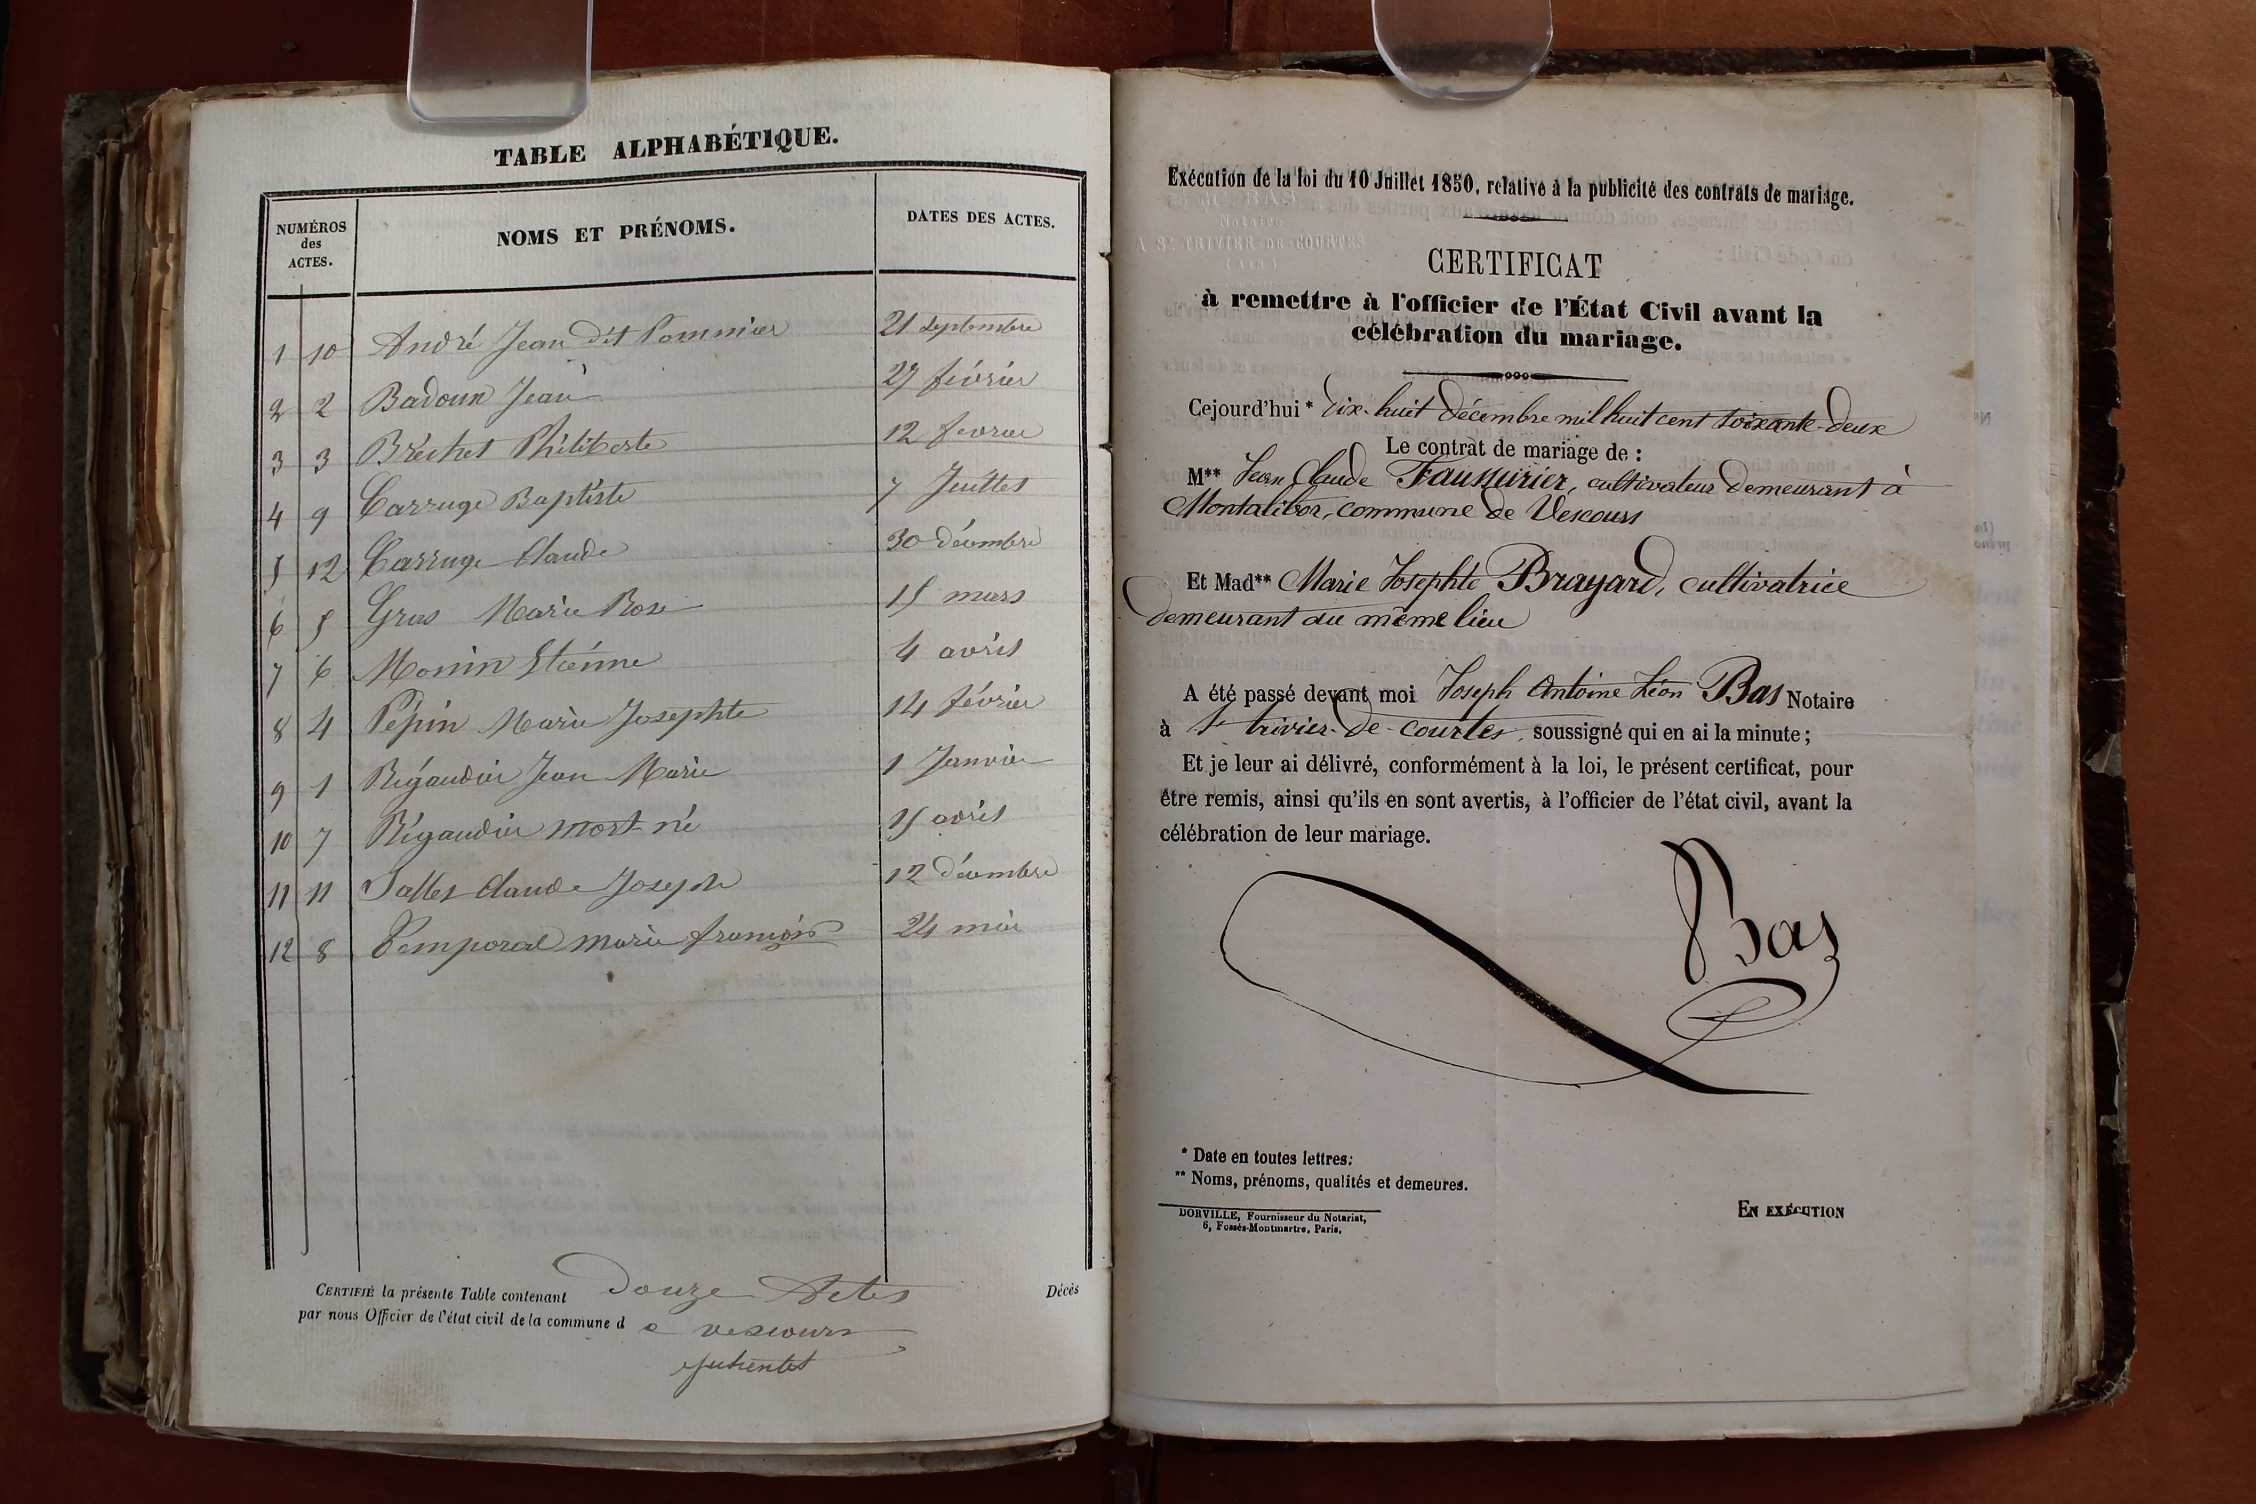 TABLE ALPHABÉTIQUE.
NUMÉROS des ACTES.
NOMS ET PRÉNOMS.
DATES DES ACTES.
1 10 André Jean dit Pommier 21 septembre
2 2 Badoux Jean 27 février
3 3 Bréchet Philiberte 12 fevrier
4 9 Carruge Baptiste 7 Juillet
5 12 Carruge Claude 30 décembre
6 5 Gras Marie Rose 15 mars
7 6 Monin Etiénne 4 avril
8 4 Pépin Marie Josephte 14 février
9 1 Rigaudier Jean Marie 1 Janvier
10 7 Rigaudier mort-né 15 avril
11 11 Salles Claude Joseph 12 décembre
12 8 Temporal marie françois 24 mai
CERTIFIÉ la présente Table contenant Douze Actes Décès
par nous Officier de l'état civil de la commune d e vescours
Exécution de la loi du 10 Juillet 1850, relative à la publicité des contrats de mariage.
BAS
Notaire
A St TRIVIER-DE-COURTES
(AIN)
CERTIFICAT
à remettre à l'officier de l'État Civil avant la
célébration du mariage.
Cejourd'hui * dix-huit décembre mil huit cent soixante-deux
Le contrat de mariage de :
M** Jean Claude Faussurier, cultivateur demeurant à
Montalibor, commune de Vescours
Et Mad** Marie Josephte Brayard, cultivatrice
demeurant au même lieu
A été passé devant moi Joseph Antoine Léon Bas Notaire
à St trivier-de-courtes, soussigné qui en ai la minute ;
Et je leur ai délivré, conformément à la loi, le présent certificat, pour
être remis, ainsi qu'ils en sont avertis, à l'officier de l'état civil, avant la
célébration de leur mariage.
Bas
* Date en toutes lettres.
** Noms, prénoms, qualités et demeures.
DORVILLE, Fournisseur du Notariat,
6, Fossés-Montmartre, Paris.
EN EXÉCUTION